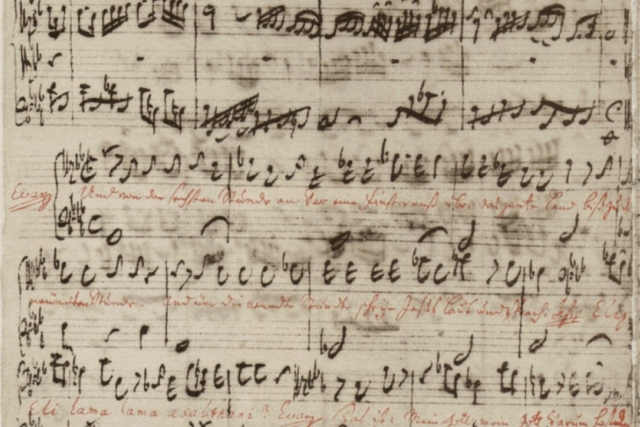 Evang. Und von der sechsten Stunde an war eine Finsternis über das gantze Land biß zu der
neundten Stunde. Und um die neundte Stunde schrye Jesus laut und sprach: Jesus Eli,
Eli lama lama asabthani? Evang. Das ist: Mein Gott, mein Gott warum hast du